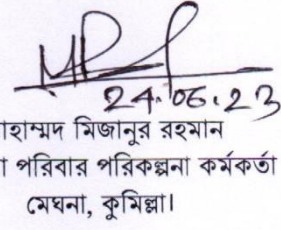 24.06.23
হাম্মদ মিজানুর রহমান
পরিবার পরিকল্পনা কর্মকর্তা
মেঘনা, কুমিল্লা।